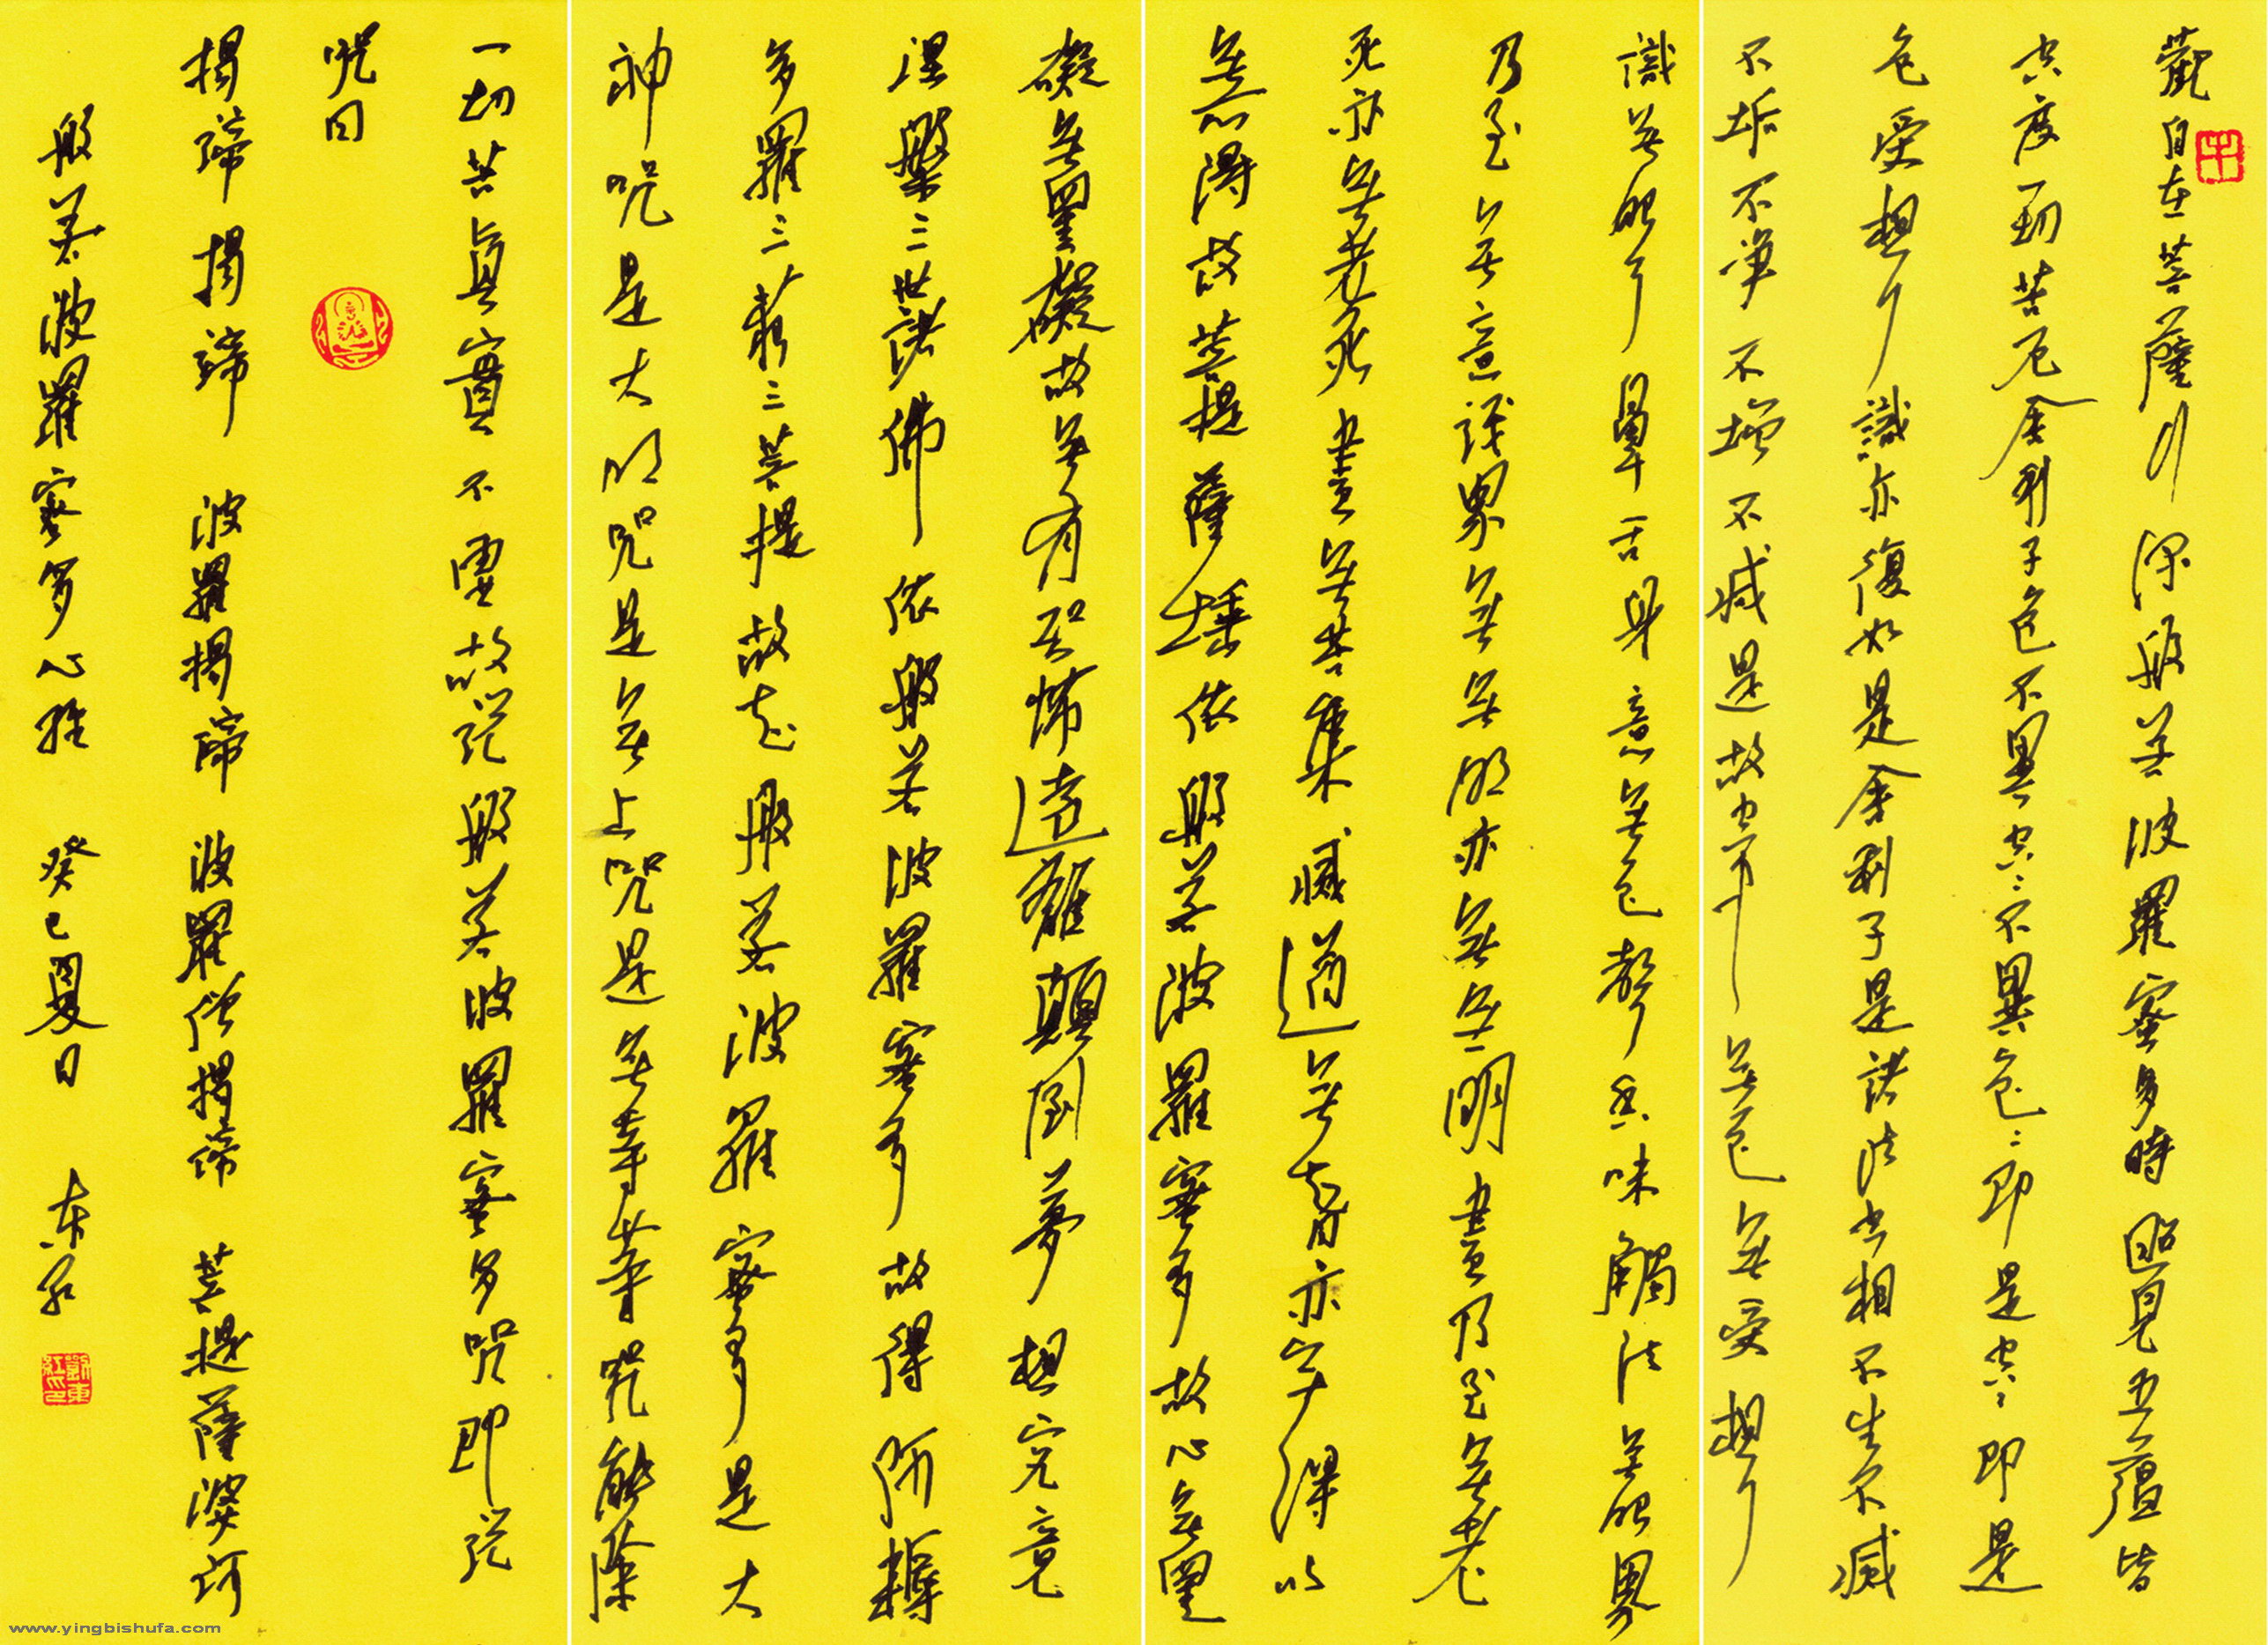 觀自在菩薩行深般若波羅蜜多時照見五蘊皆
空度一切苦厄舍利子色不異空空不異色色即是空空即是
色受想行識亦復如是舍利子是諸法空相不生不滅
不垢不淨不增不減是故空中無色無受想行
識無眼耳鼻舌身意無色聲香味觸法無眼界
乃至無意識界無無無明亦無無明盡乃至無老
死亦無老死盡無苦集滅道無智亦無得以
無所得故菩提薩埵依般若波羅蜜多故心無罣
礙無罣礙故無有恐怖遠離顛倒夢想究竟
涅槃三世諸佛依般若波羅蜜多故得阿耨
多羅三藐三菩提故知般若波羅蜜多是大
神咒是大明咒是無上咒是無等等咒能除
一切苦真實不虛故說般若波羅蜜多咒即說
咒曰
揭諦揭諦 波羅揭諦 波羅僧揭諦 菩提薩婆訶
般若波羅蜜多心經 癸巳夏日 东红
劉東紅印
www.yingbishufa.com